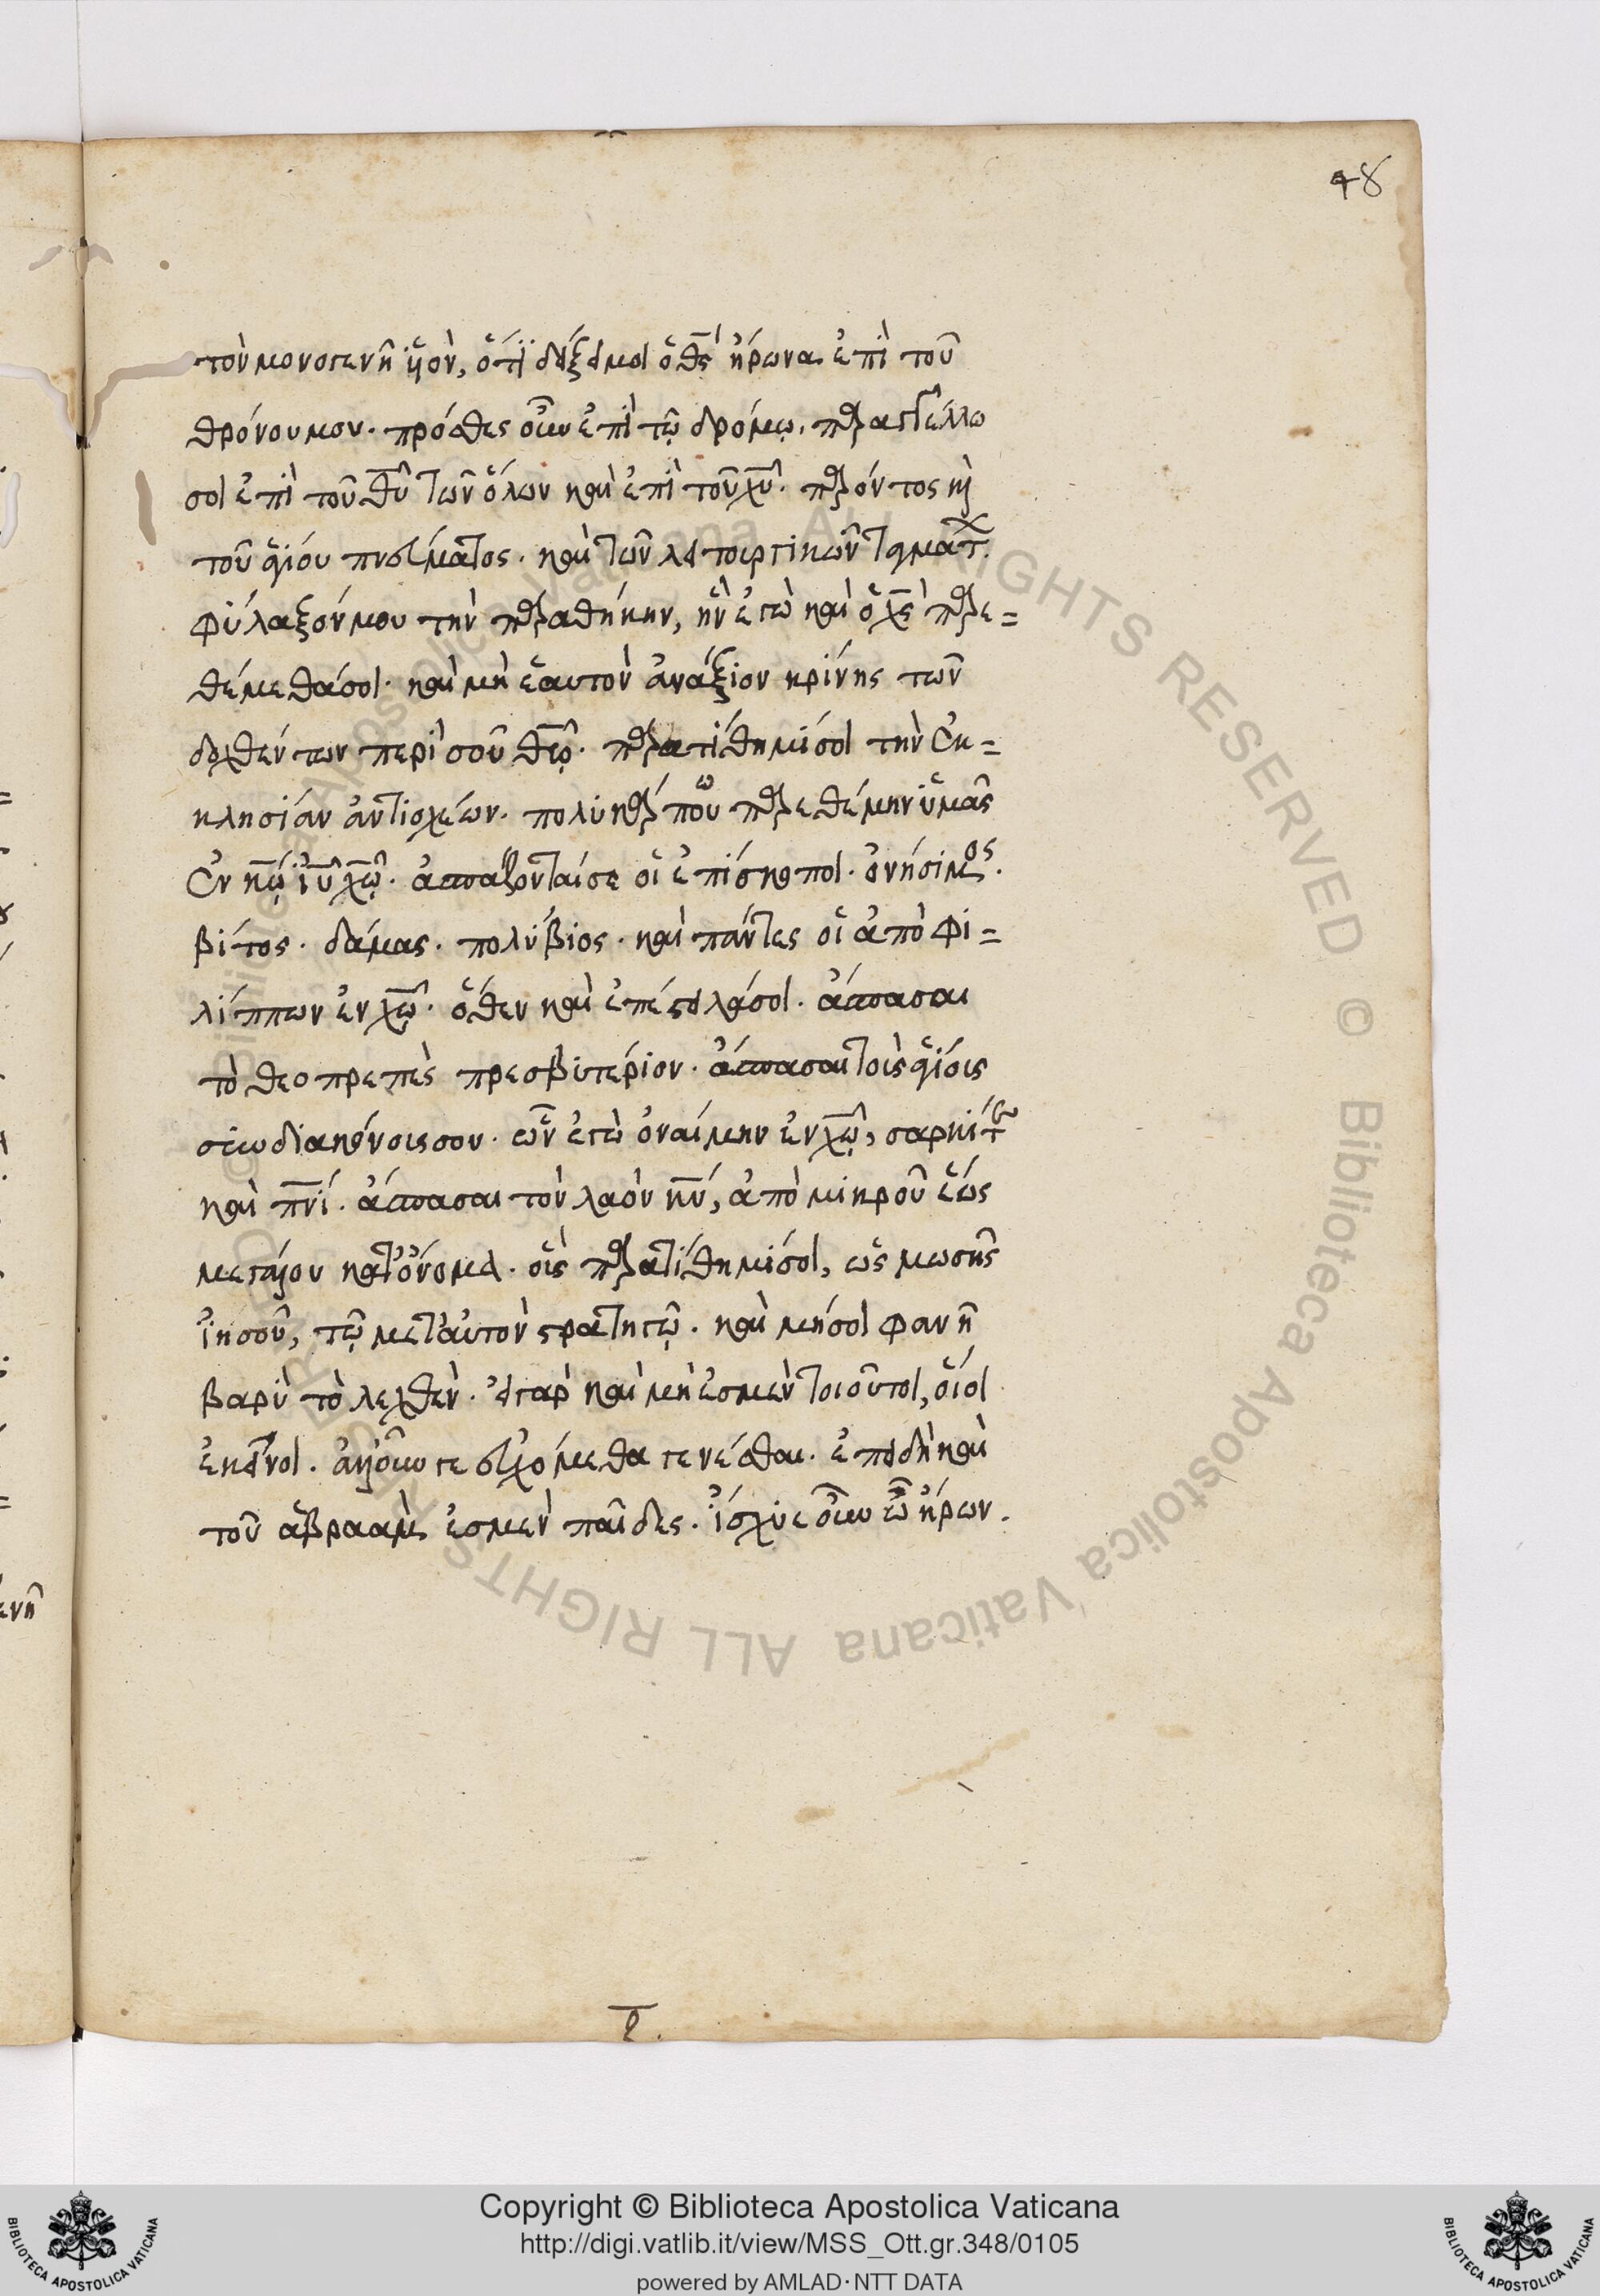 48
τὸν μονογενῆ υἱὸν, ὅτι δείξει μοι ὁ θς̅ ἥρωνα ἐπὶ τοῦ
θρόνου μου. πρόσθες οὖν ἐπὶ τῷ δρόμῳ. παραγγέλλω
σοι ἐπὶ τοῦ θυ̅ τῶν ὅλων καὶ ἐπὶ τοῦ χυ̅. παρόντος καὶ
τοῦ ἁγίου πνεύματος. καὶ τῶν λειτουργικῶν ταγμάτ.
φύλαξόν μου τὴν παραθήκην, ἣν ἐγὼ καὶ ὁ χς̅ παρε=
θέμεθά σοι. καὶ μὴ ἑαυτὸν ἀνάξιον κρίνῃς τῶν
δειχθέντων περὶ σοῦ θεῷ. παρατίθημί σοι τὴν ἐκ=
κλησίαν ἀντιοχέων. πολυκάρπῳ παρεθέμην ὑμᾶς
ἐν κω̅ ιυ̅ χω̅. ἀσπάζονταί σε οἱ ἐπίσκοποι. ὀνήσιμος.
βίτος. δάμας. πολύβιος. καὶ πάντες οἱ ἀπὸ φι=
λίππων ἐν χω̅. ὅθεν καὶ ἐπέστειλά σοι. ἄσπασαι
τὸ θεοπρεπὲς πρεσβυτέριον. ἄσπασαι τοὺς ἁγίους
συνδιακόνους σου. ὧν ἐγὼ ὀναίμην ἐν χω̅, σαρκί τε
καὶ πνι̅. ἄσπασαι τὸν λαὸν κυ̅, ἀπὸ μικροῦ ἕως
μεγάλου κατ' ὄνομα. οὓς παρατίθημί σοι, ὡς μωσῆς
ἰησοῦ, τῷ μετ' αὐτὸν στρατηγῷ. καὶ μή σοι φανῇ
βαρὺ τὸ λεχθέν. εἰ γὰρ καὶ μὴ ἐσμὲν τοιοῦτοι, οἷοι
ἐκεῖνοι. ἀλλ' οὖν γε εὐχόμεθα γενέσθαι. ἐπειδὴ καὶ
τοῦ ἀβραάμ ἐσμεν παῖδες. ἴσχυε οὖν ὦ ἥρων.
Copyright © Biblioteca Apostolica Vaticana
http://digi.vatlib.it/view/MSS_Ott.gr.348/0105
powered by AMLAD·NTT DATA